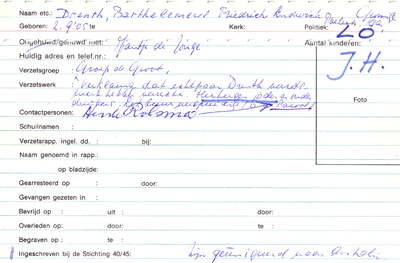 Naam etc.: Drenth, Barthelomeus Friedrich
Geboren: 2.9.'05 te Kerk: Politiek:
Ongehuwd/gehuwd met: Mantje de Jonge Aantal kinderen:
Huidig adres en telef.nr.: J.H.
Verzetsgroep: Groep de Groot,
Verzetswerk: Verklaring dat echtpaar Drenth verzets-
werk hebben verricht. Herbergen joden en onder
duikers,
Contactpersonen: Henk Robsma
Foto
Schuilnaam:
Verzetsrapp. ingel. dd.: bij:
Naam genoemd in rapp.:
op bladzijde:
Gearresteerd op: door:
Gevangen gezeten in:
Bevrijd op: uit: door:
Overleden op: te: door:
Begraven op: te:
Ingeschreven bij de Stichting 40/45: zijn geëmigreerd naar